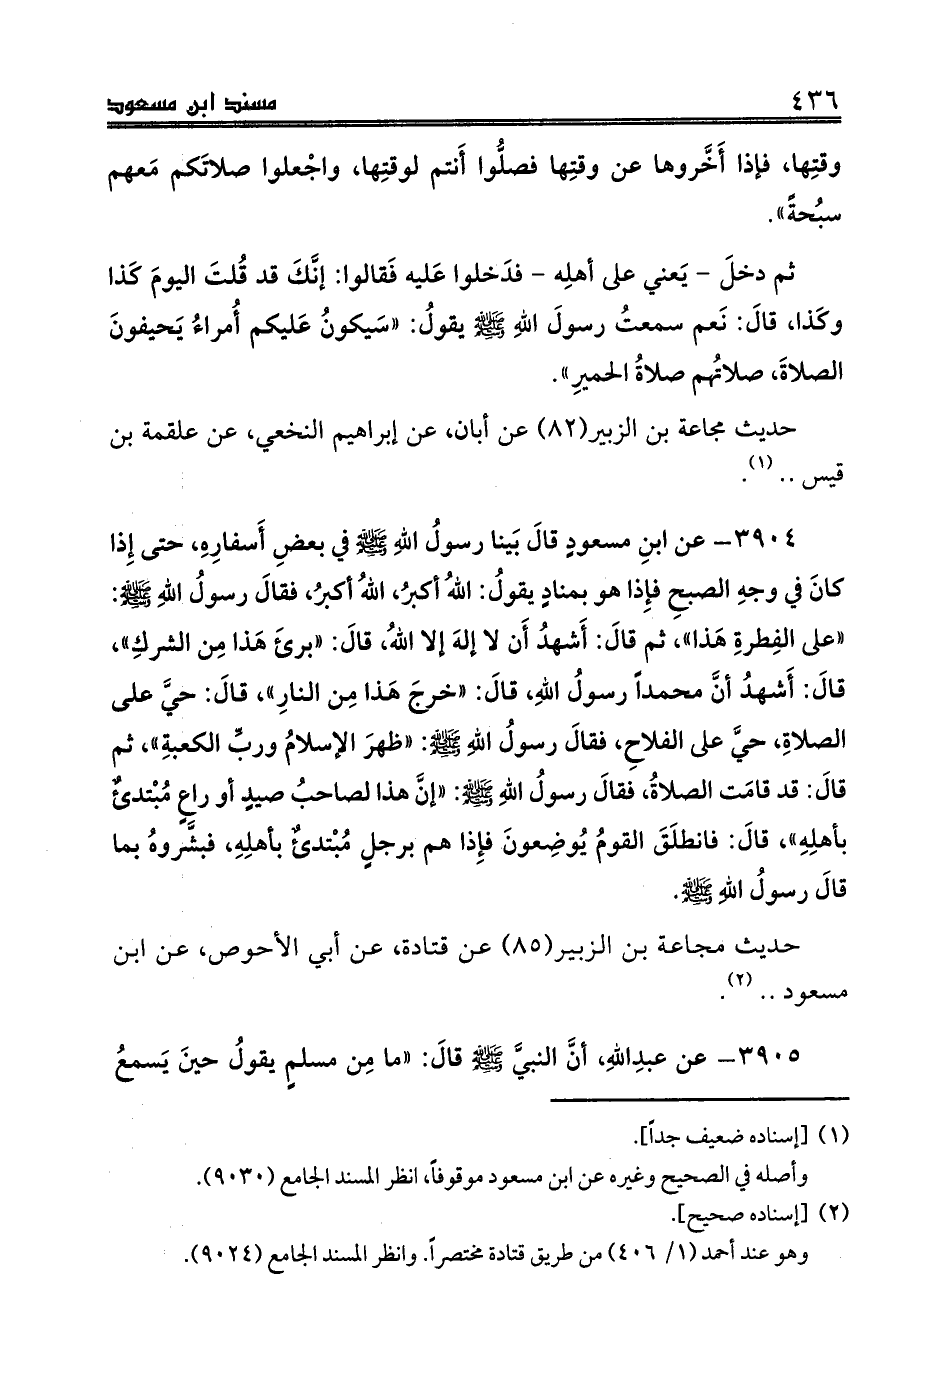 ٤٣٦ مسند ابن مسعود
وقتِها، فإذا أَخَّروها عن وقتِها فصلُّوا أَنتم لوقتِها، واجْعلوا صلاتَكم مَعهم
سبُحةً».
ثم دخلَ - يَعني على أهلِه - فدَخلوا عَليه فَقالوا: إنَّكَ قد قُلتَ اليومَ كَذا
وكَذا، قالَ: نَعم سمعتُ رسولَ اللهِ ﷺ يقولُ: «سَيكونُ عَليكم أُمراءُ يَحيفونَ
الصلاةَ، صلاتُهم صلاةُ الحميرِ».
حديث مجاعة بن الزبير(٨٢) عن أبان، عن إبراهيم النخعي، عن علقمة بن
قيس .. (١).
٣٩٠٤- عن ابنِ مسعودٍ قالَ بَينا رسولُ اللهِ ﷺ في بعضِ أَسفارِه، حتى إِذا
كانَ في وجهِ الصبحِ فإِذا هو بمنادٍ يقولُ: اللهُ أكبرُ، اللهُ أكبرُ، فقالَ رسولُ اللهِ ﷺ:
«على الفِطرةِ هَذا»، ثم قالَ: أَشهدُ أَن لا إلهَ إلا اللهُ، قالَ: «برئَ هَذا مِن الشركِ»،
قالَ: أَشهدُ أنَّ محمداً رسولُ اللهِ، قالَ: «خرجَ هَذا مِن النارِ»، قالَ: حيَّ على
الصلاةِ، حيَّ على الفلاحِ، فقالَ رسولُ اللهِ ﷺ: «ظهرَ الإسلامُ وربِّ الكعبةِ»، ثم
قالَ: قد قامَت الصلاةُ، فقالَ رسولُ اللهِ ﷺ: «إنَّ هذا لصاحبُ صيدٍ أو راعٍ مُبْتدئٌ
بأهلِهِ»، قالَ: فانطلَقَ القومُ يُوضِعونَ فإِذا هم برجلٍ مُبْتدئٌ بأهلِهِ، فبشَّروهُ بما
قالَ رسولُ اللهِ ﷺ.
حديث مجاعة بن الزبير(٨٥) عن قتادة، عن أبي الأحوص، عن ابن
مسعود .. (٢).
٣٩٠٥- عن عبدِاللهِ، أنَّ النبيَّ ﷺ قالَ: «ما مِن مسلمٍ يقولُ حينَ يَسمعُ
(١) [إسناده ضعيف جداً].
وأصله في الصحيح وغيره عن ابن مسعود موقوفاً، انظر المسند الجامع (٩٠٣٠).
(٢) [إسناده صحيح].
وهو عند أحمد (١/ ٤٠٦) من طريق قتادة مختصراً. وانظر المسند الجامع (٩٠٢٤).